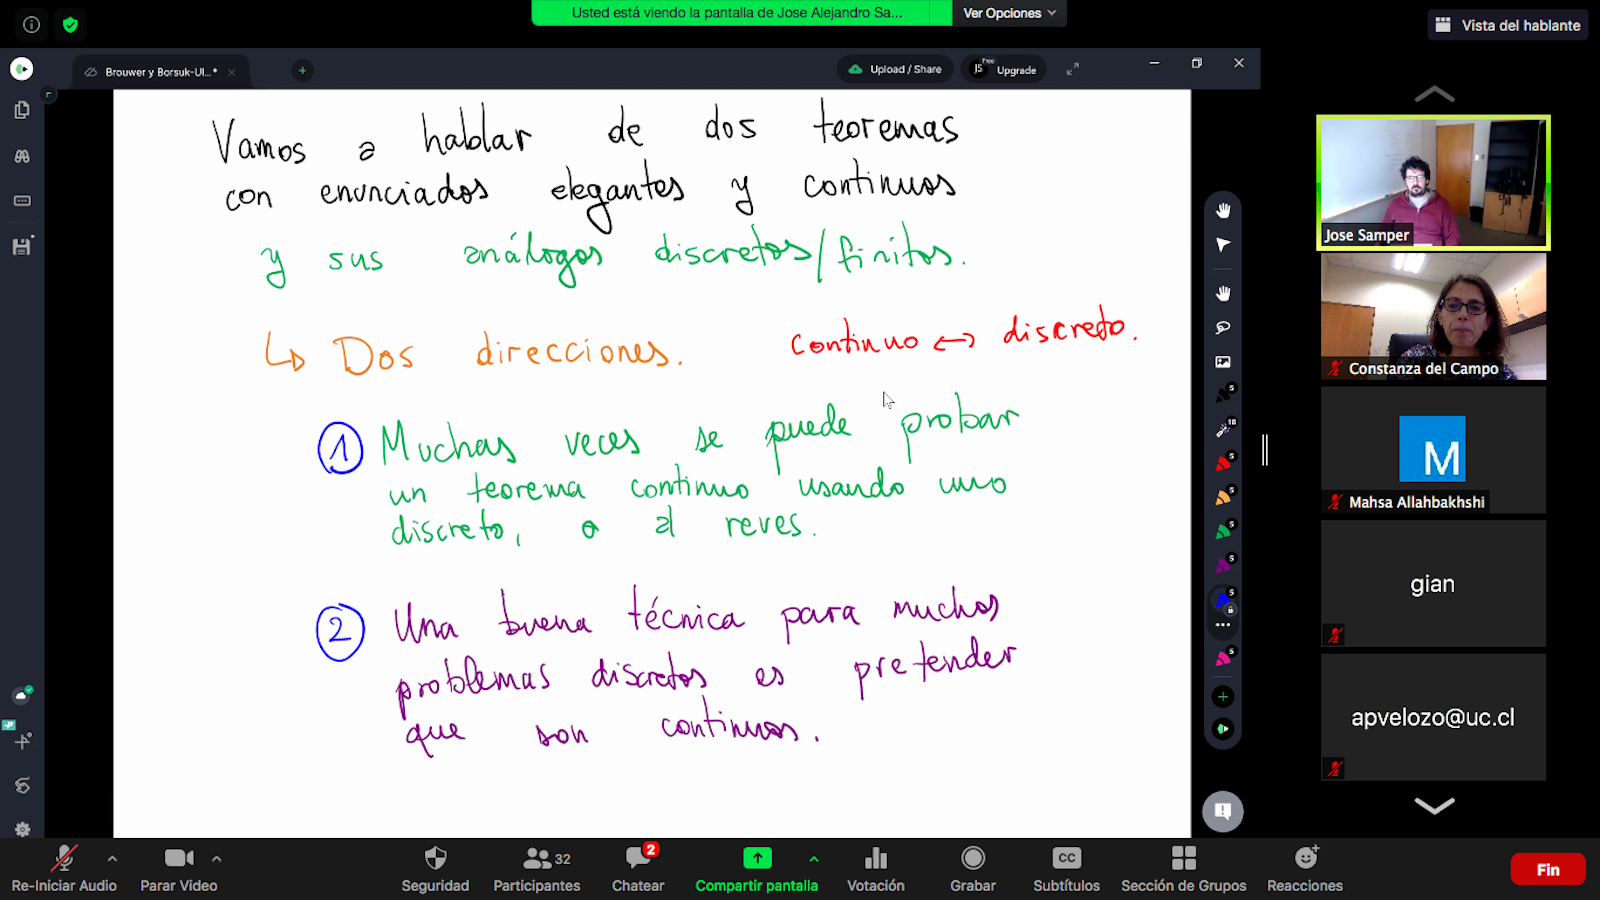 Usted está viendo la pantalla de Jose Alejandro Sa...
Ver Opciones
Vista del hablante
Brouwer y Borsuk-Ul...*
Upload / Share
JS
Free
Upgrade
Vamos a hablar de dos teoremas
con enunciados elegantes y continuos
y sus análogos discretos/finitos.
↳ Dos direcciones.
continuo ↔ discreto.
1 Muchas veces se puede probar
un teorema continuo usando uno
discreto, o al reves.
2 Una buena técnica para muchos
problemas discretos es pretender
que son continuos.
5
18
5
5
5
5
5
5
Jose Samper
Constanza del Campo
M
Mahsa Allahbakhshi
gian
apvelozo@uc.cl
Re-Iniciar Audio
Parar Video
Seguridad
32
Participantes
2
Chatear
Compartir pantalla
Votación
Grabar
CC
Subtítulos
Sección de Grupos
Reacciones
Fin